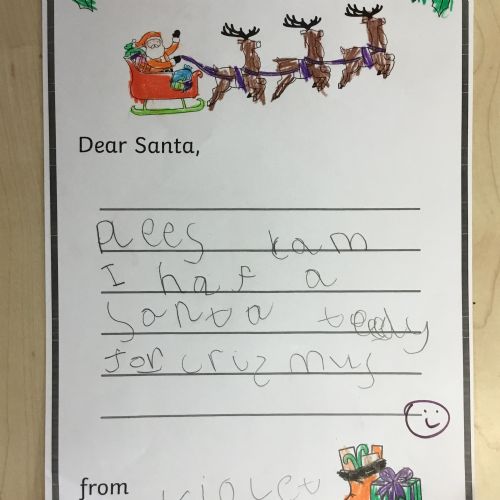 Dear Santa,
plees kam
I haf a
Santa teedy
for crizmus
from violet